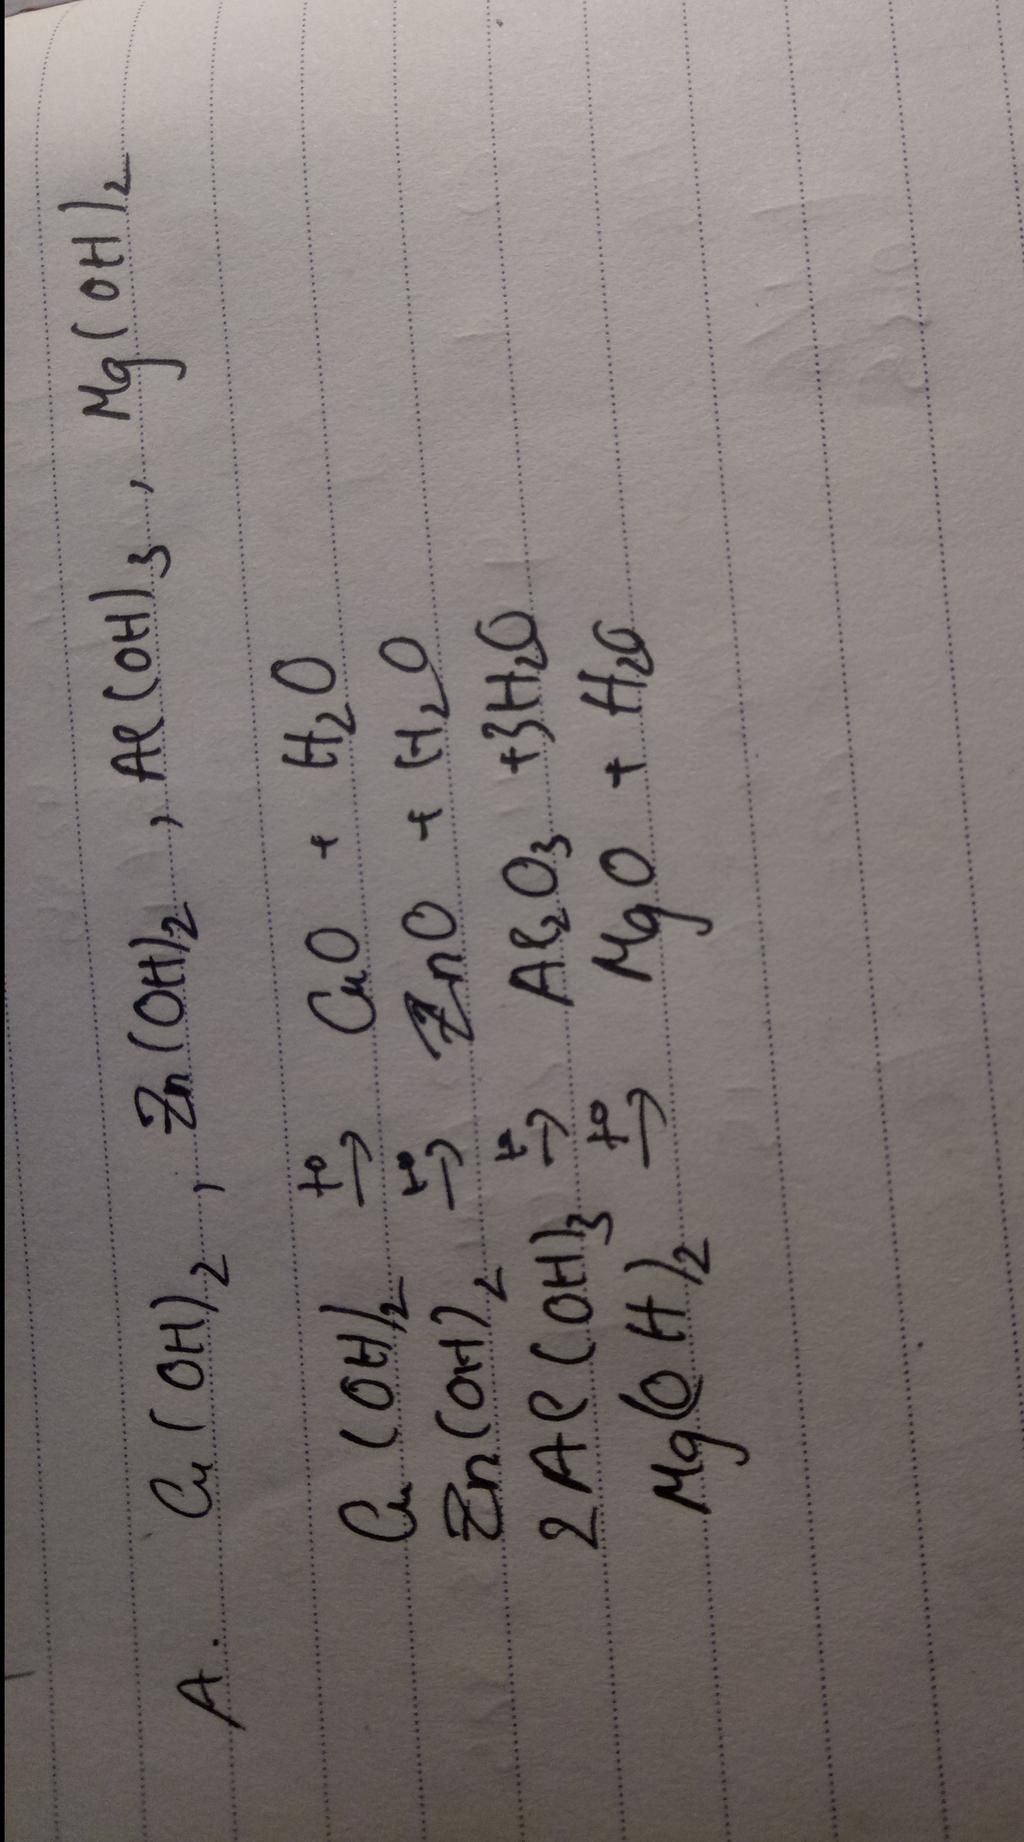 A. Cu(OH)2, Zn(OH)2, Al(OH)3, Mg(OH)2
Cu(OH)2 t° → CuO + H2O
Zn(OH)2 t° → ZnO + H2O
2Al(OH)3 t° → Al2O3 + 3H2O
Mg(OH)2 t° → MgO + H2O